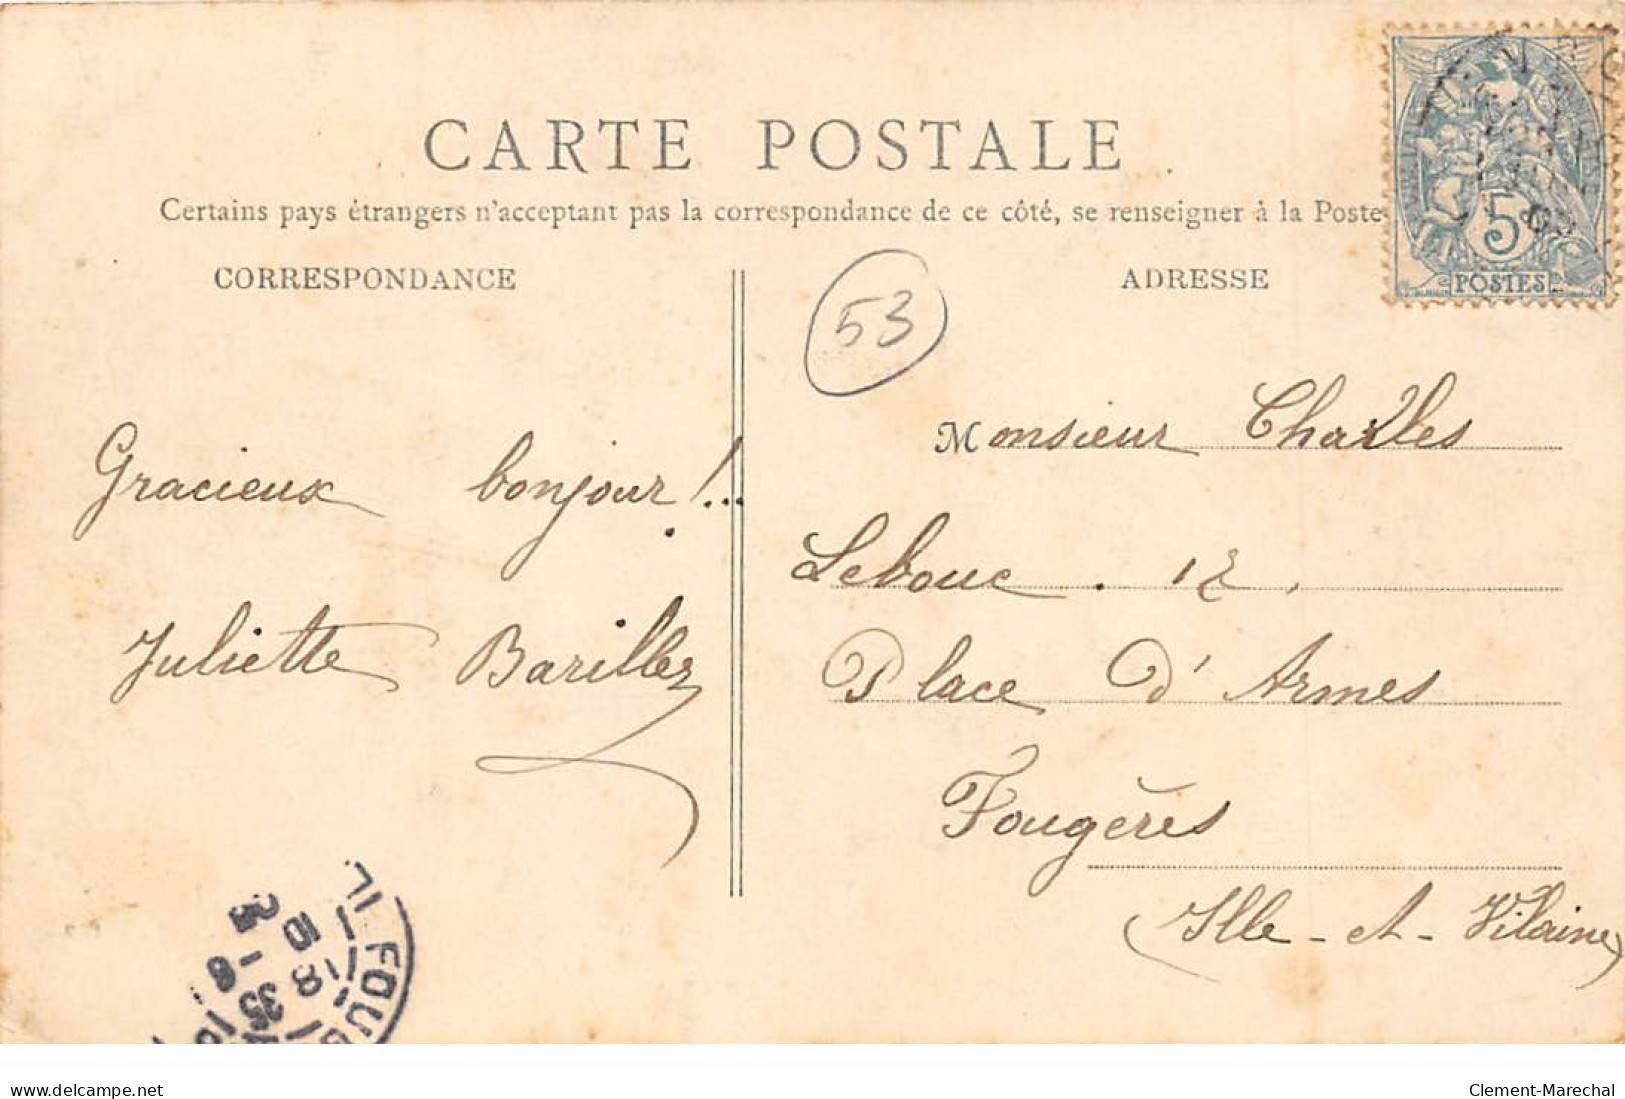 CARTE POSTALE
Certains pays étrangers n'acceptant pas la correspondance de ce côté, se renseigner à la Poste
CORRESPONDANCE
ADRESSE
53
5
POSTES
Gracieux bonjour !..
Juliette Barillez
Monsieur Charles
Lebouc . 12 .
Place D'Armes
Fougères
(Ille-et-Vilaine)
FOUG
18
10
35
delcampe.net
Clement-Marechal